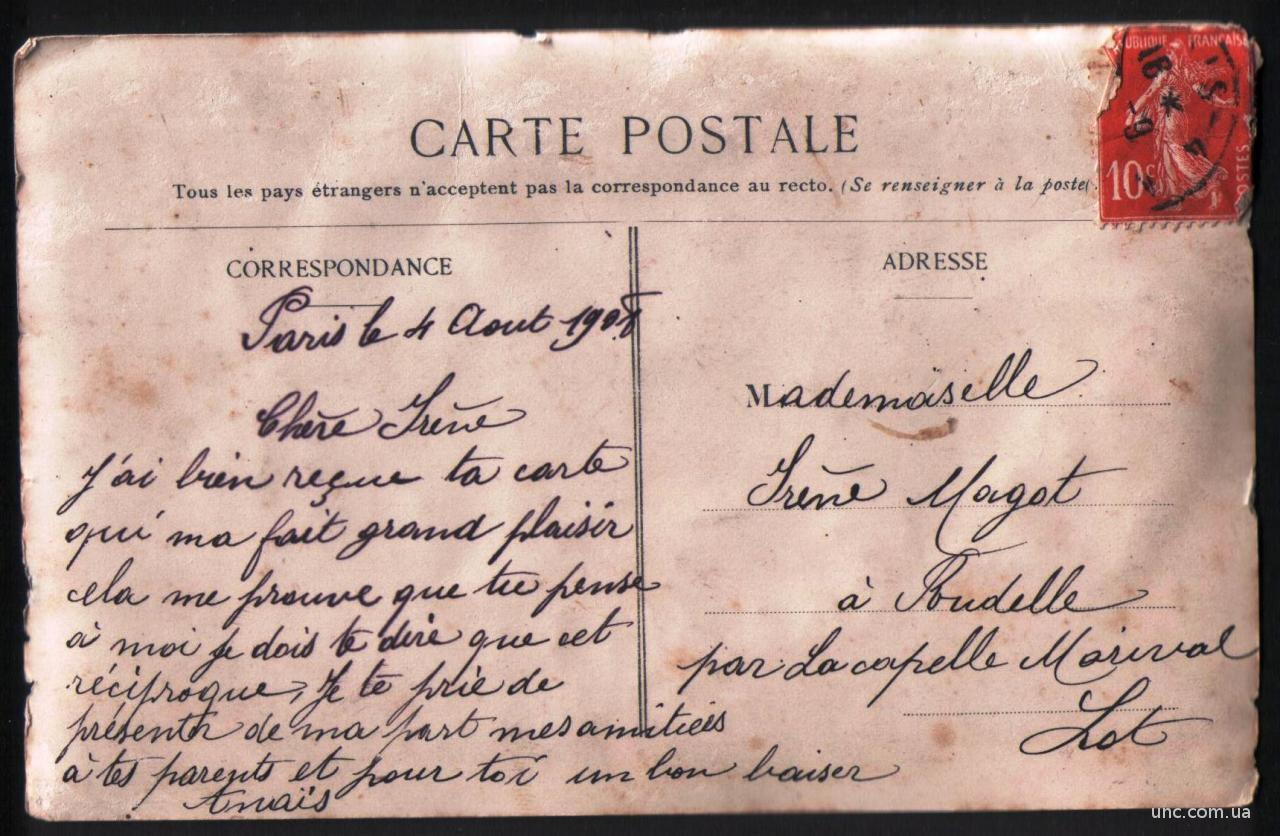 CARTE POSTALE
Tous les pays étrangers n'acceptent pas la correspondance au recto. (Se renseigner à la poste).
RÉPUBLIQUE FRANÇAISE
10c
POSTES
CORRESPONDANCE
Paris le 4 Aout 1908
Chère Irène
J'ai bien reçue ta carte
qui ma fait grand plaisir
cela me prouve que tu pense
à moi je dois te dire que cet
réciproque, Je te prie de
présenter de ma part mes amitiées
à tes parents et pour toi un bon baiser
Anaïs
ADRESSE
Mademoiselle
Irène Magot
à
par Lacapelle Marival
Lot
unc.com.ua